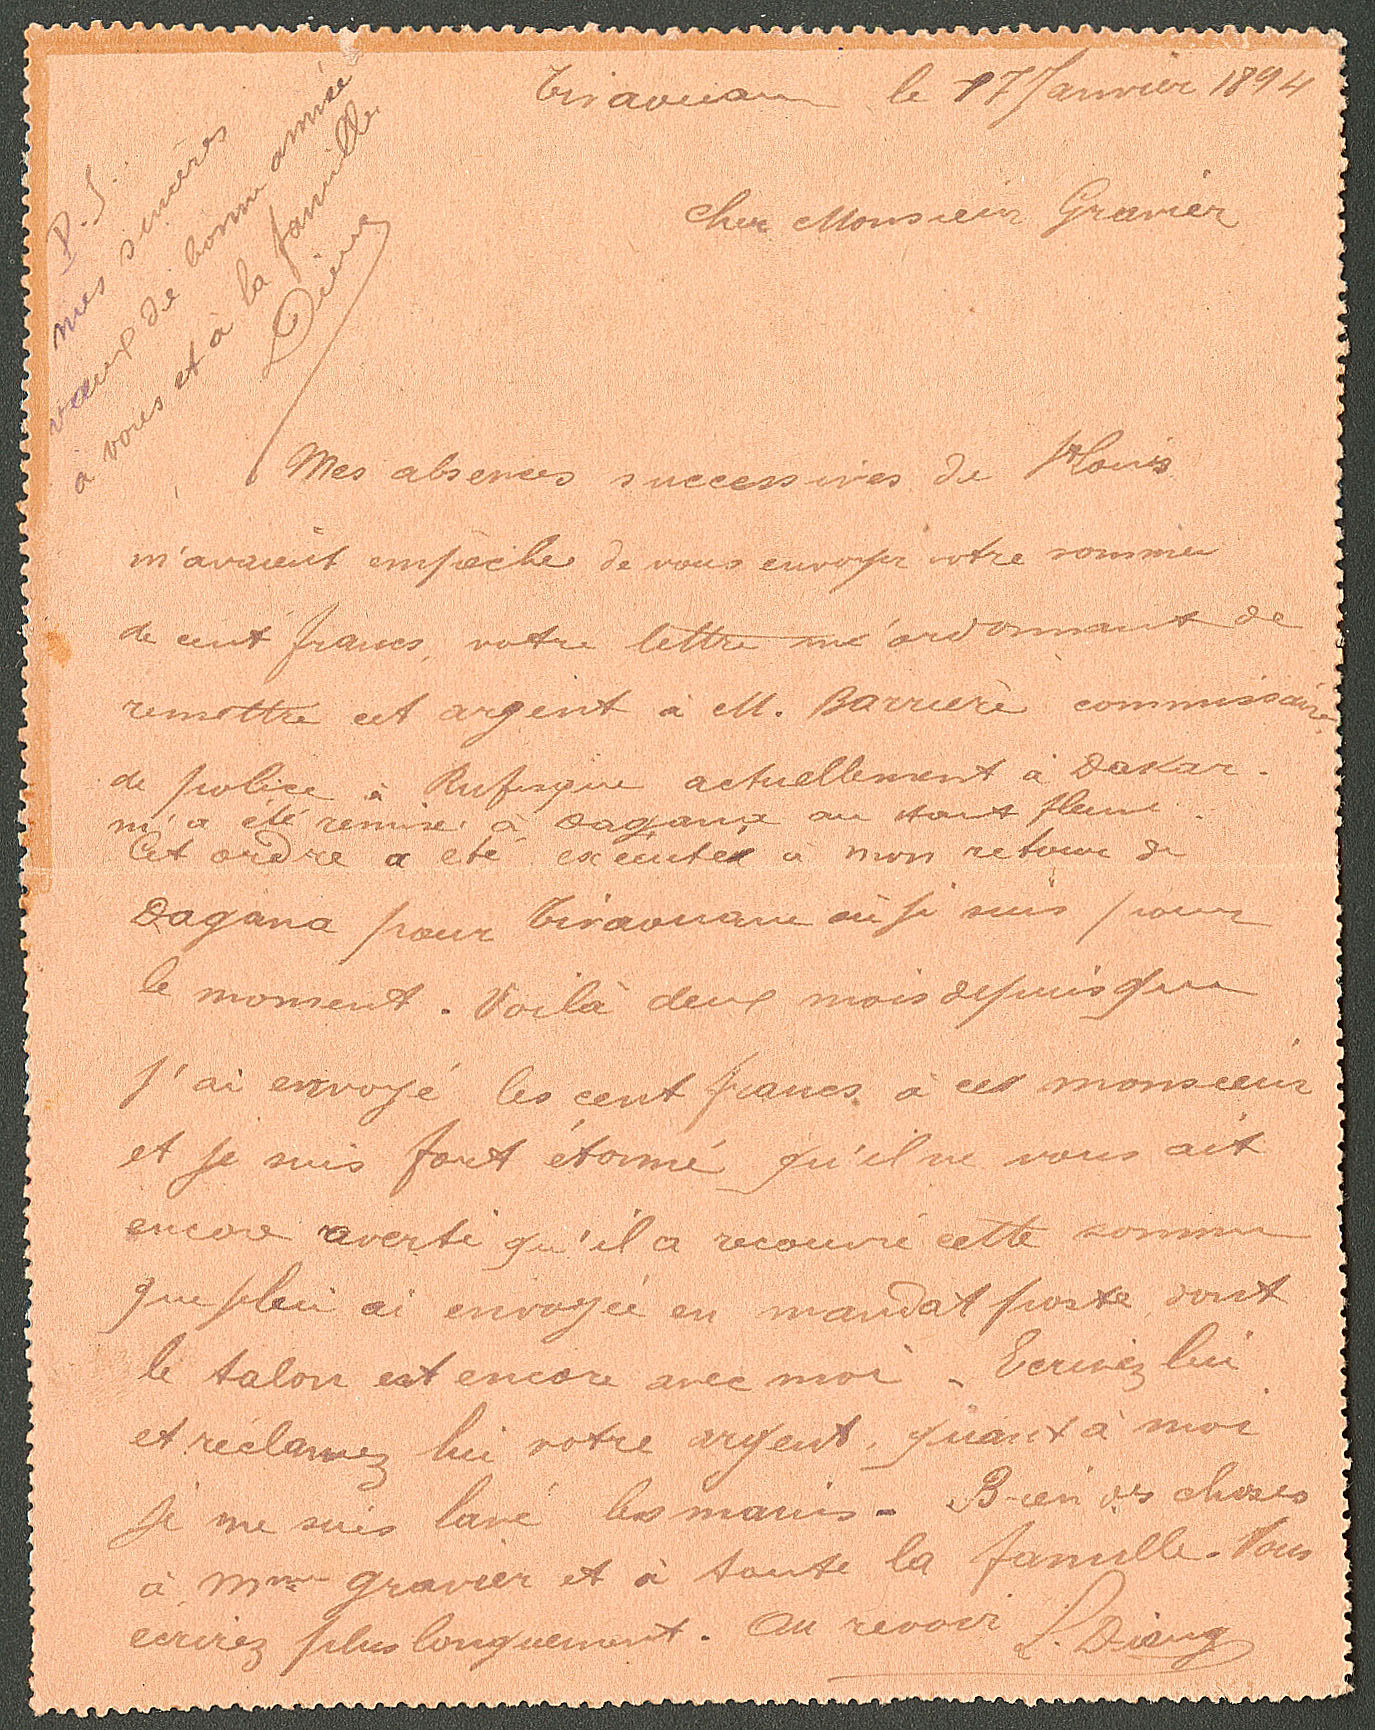 Tivaouane le 17 Janvier 1894
P.S.
mes sincères
vœux de bonne année
à vous et à la famille
Dieng
Cher Monsieur Gravier
Mes absences successives de St Louis
m'avaient empêché de vous envoyer votre somme
de cent francs, votre lettre m'ordonnant de
remettre cet argent à M. Barrière commissaire
de police à Rufisque actuellement à Dakar.
m'a été remise à Dagana au haut fleuve.
Cet ordre a été exécuté à mon retour de
Dagana pour Tivaouane où je suis pour
le moment. Voilà deux mois depuis que
j'ai envoyé les cent francs à ce monsieur
et je suis fort étonné qu'il ne vous ait
encore averti qu'il a recouvré cette somme
que je lui ai envoyée en mandat poste, dont
le talon est encore avec moi. Ecrivez lui
et réclamez lui votre argent, quant à moi
je me suis lavé les mains - Bien des choses
à Mme Gravier et à toute la famille. Vous
écrirez plus longuement. Au revoir L. Dieng